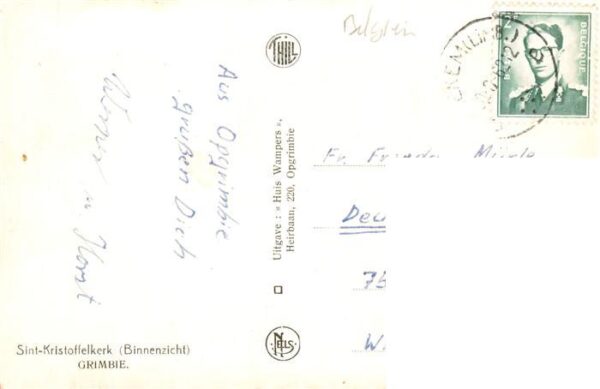 Belgien
THILL
2F
BELGIQUE
Aus Opgrimbie
grüßen Dich
Werner u. Horst
Uitgave : » Huis Wampers »,
Heirbaan, 220, Opgrimbie
Fr. Frieda
Deu
75
W.
NELS
Sint-Kristoffelkerk (Binnenzicht)
GRIMBIE.